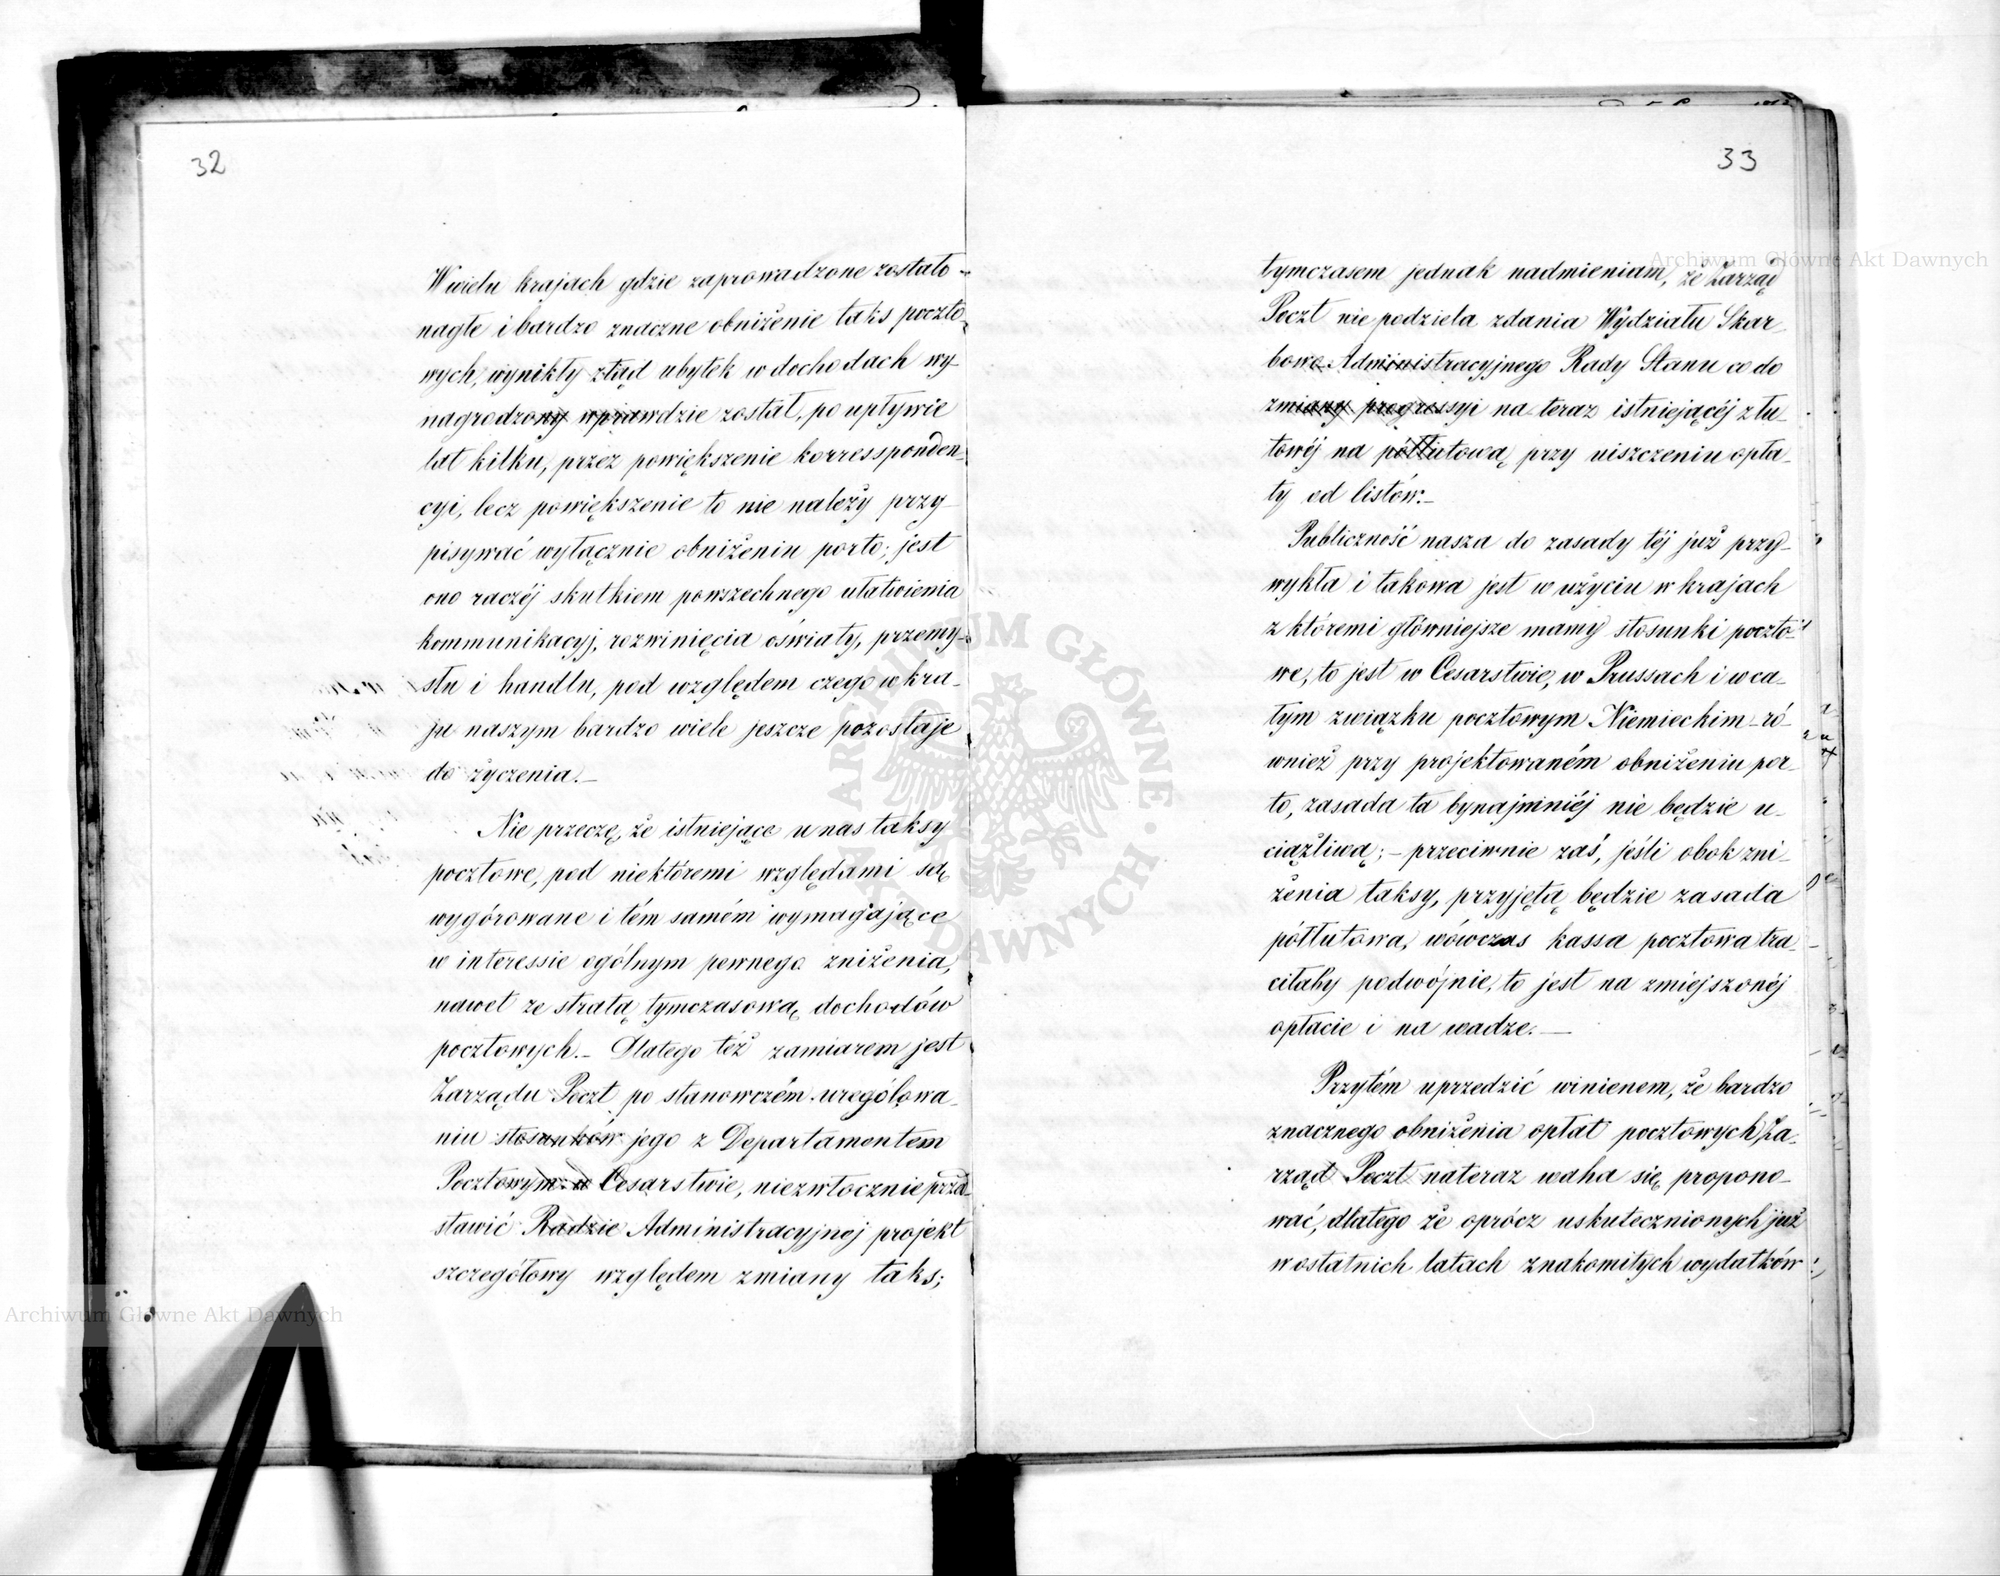 32
W wielu krajach gdzie zaprowadzone zostało
nagłe i bardzo znaczne obniżenie taks poczto-
wych, wynikły ztąd ubytek w dochodach wy-
nagrodzony wprawdzie został, po upływie
lat kilku, przez powiększenie korresponden-
cyi, lecz powiększenie to nie należy przy-
pisywać wyłącznie obniżeniu porto; jest
ono raczéj skutkiem powszechnego ułatwienia
kommunikacyj, rozwinięcia oświaty, przemy-
słu i handlu, pod względem czego w kra-
ju naszym bardzo wiele jeszcze pozostaje
do życzenia.-
Nie przeczę, że istniejące u nas taksy
pocztowe, pod niektóremi względami są
wygórowane i tém samém wymagające
w interessie ogólnym pewnego zniżenia,
nawet ze stratą tymczasową dochodów
pocztowych.- Dlatego téż zamiarem jest
Zarządu Poczt po stanowczém uregulowa-
niu stosunków jego z Departamentem
Pocztowym w Cesarstwie, niezwłocznie przed-
stawić Radzie Administracyjnej projekt
szczegółowy względem zmiany taks;
33
tymczasem jednak nadmieniam, że Zarząd
Poczt nie podziela zdania Wydziału Skar-
bowo-Administracyjnego Rady Stanu co do
zmiany progressyi na teraz istniejącéj z łu-
towéj na półłutową przy uiszczeniu opła-
ty od listów.-
Publiczność nasza do zasady téj już przy-
wykła i takowa jest w użyciu w krajach
z któremi główniejsze mamy stosunki poczto-
we, to jest w Cesarstwie, w Prussach i w ca-
łym związku pocztowym Niemieckim - ró-
wnież przy projektowaném obniżeniu por-
to, zasada ta bynajmniéj nie będzie u-
ciążliwą; - przeciwnie zaś, jeśli obok zni-
żenia taksy, przyjętą będzie zasada
półłutowa, wówczas kassa pocztowa tra-
ciłaby podwójnie, to jest na zmiejszonéj
opłacie i na wadze.-
Przytém uprzedzić winienem, że bardzo
znacznego obniżenia opłat pocztowych Za-
rząd Poczt nateraz waha się propono-
wać, dlatego że oprócz uskutecznionych już
w ostatnich latach znakomitych wydatków
Archiwum Główne Akt Dawnych
Archiwum Główne Akt Dawnych
ARCHIWUM GŁÓWNE AKT DAWNYCH